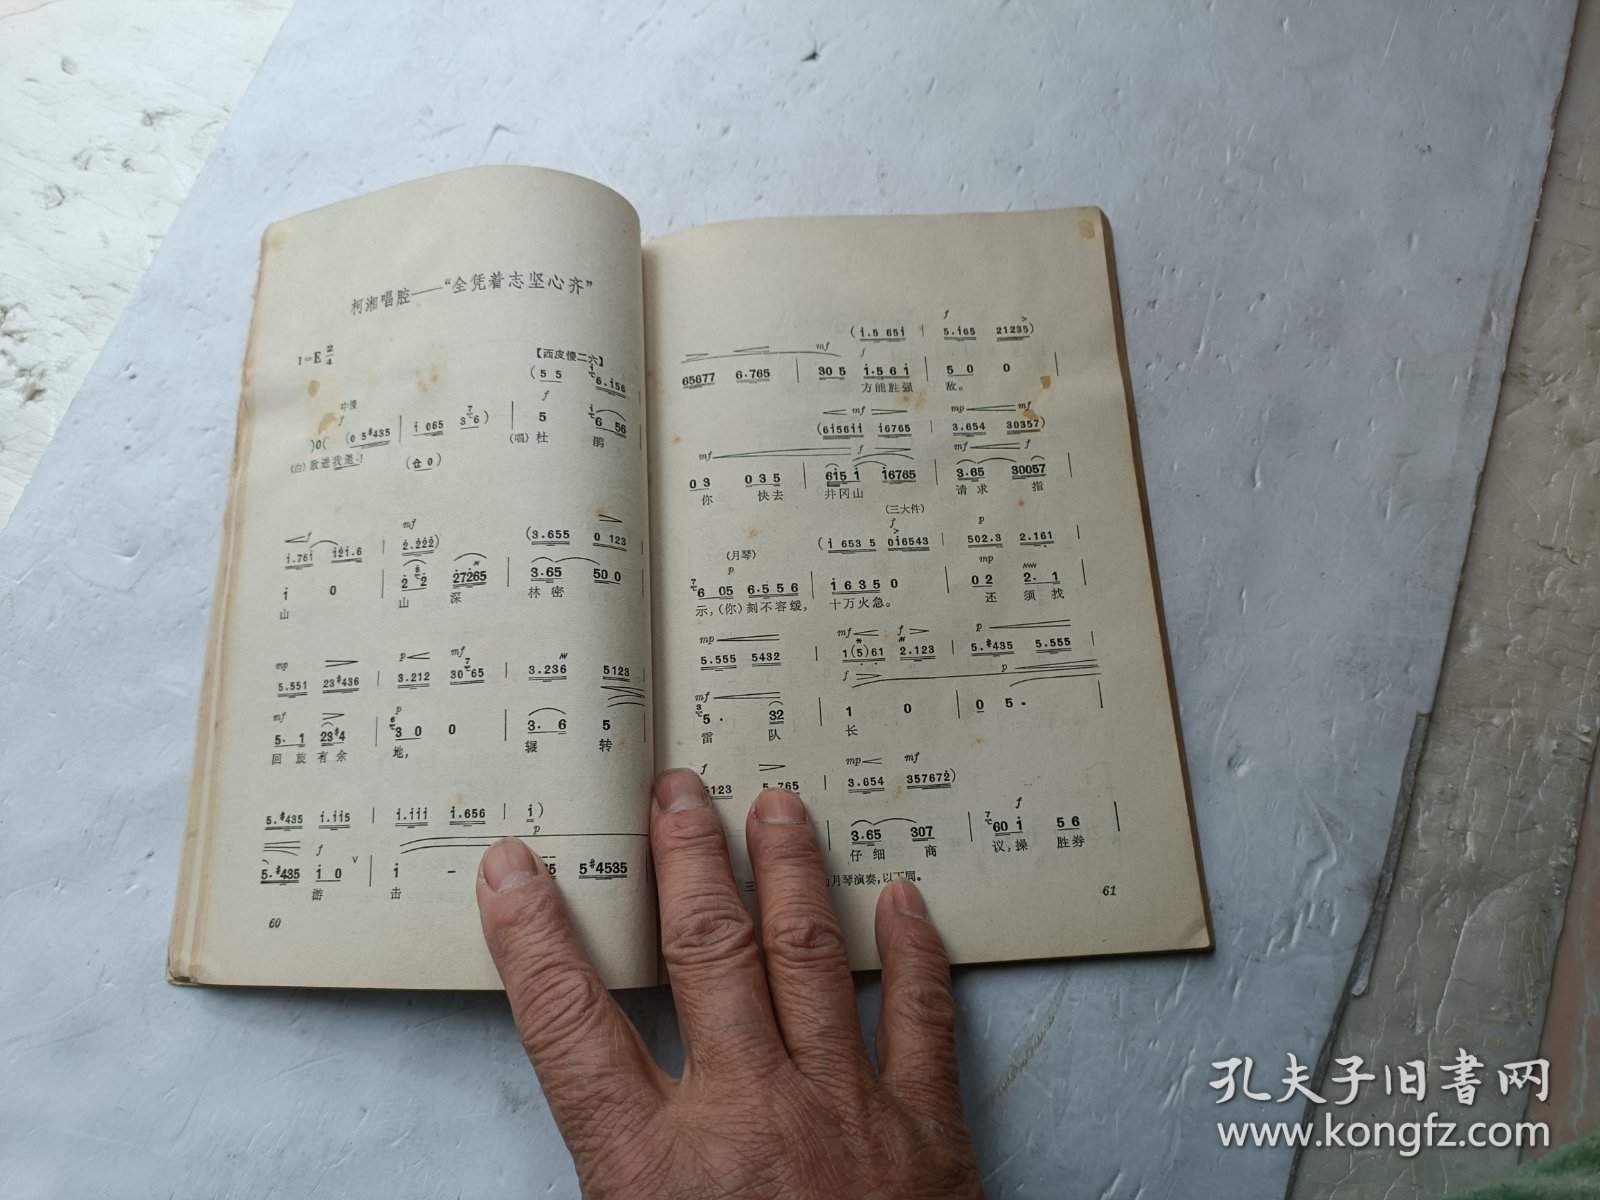 柯湘唱腔——“全凭着志坚心齐”
1=E 2/4
【西皮慢二六】
(5 5 6.i56
中慢
f
)0( (0 5#435 | i 065 3 6) | 5 6 56
(白)敌进我退! (仓 0) (唱)杜 鹃
f mf
i.76i i2i.6 | 2.222) (3.655 0 123
i 0 | 2 2 27265 | 3.65 50 0
山 山 深 林 密
mp p mf
5.551 23#436 | 3.212 30 65 | 3.236 5123
mf p
5. 1 23#4 | 3 0 0 | 3. 6 5
回 旋 有 余 地, 辗 转
5.#435 i.ii5 | i.iii i.656 | i)
f p
5.#435 i 0 | i - 5#4535
游 击
60
f
(i.5 65i | 5.i65 21235)
mf f
65677 6.765 | 30 5 i.5 6 i | 5 0 0
方能胜强 敌。
mf mp mf
(6i56ii i6765 | 3.654 30357)
mf f mf f
0 3 0 3 5 | 6i5 i i6765 | 3.65 30057
你 快去 井冈山 请 求 指
(三大件)
f p
(月琴) (i 653 5 0i6543 | 502.3 2.161
p mp
6 05 6.5 5 6 | i 6 3 5 0 | 0 2 2. 1
示,(你)刻不容缓, 十万火急。 还 须 找
mp mf f p
5.555 5432 | 1(5)61 2.123 | 5.#435 5.555
mf f p
5. 32 | 1 0 | 0 5.
雷 队 长
f mp mf
5123 5.765 | 3.654 357672)
f
3.65 307 | 60 i 5 6
仔 细 商 议,操 胜券
月琴演奏,以下同。
61
孔夫子旧书网
www.kongfz.com